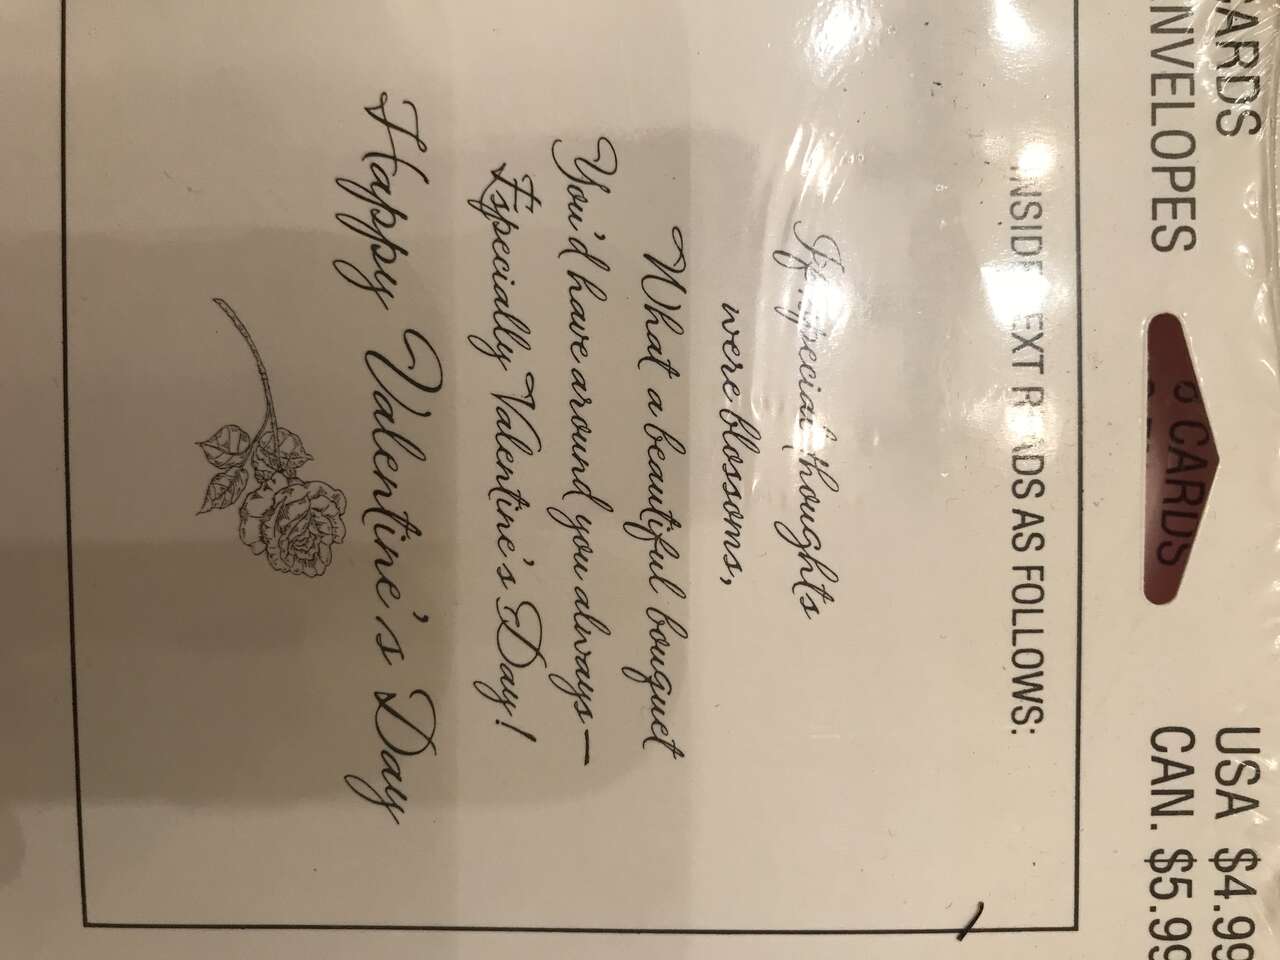 CARDS
ENVELOPES
USA $4.99
CAN. $5.99
CARDS
INSIDE TEXT READS AS FOLLOWS:
If special thoughts
were blossoms,
What a beautiful bouquet
You'd have around you always—
Especially Valentine's Day!
Happy Valentine's Day